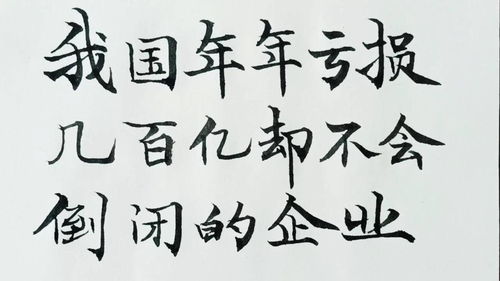 我国年年亏损
几百亿却不会
倒闭的企业